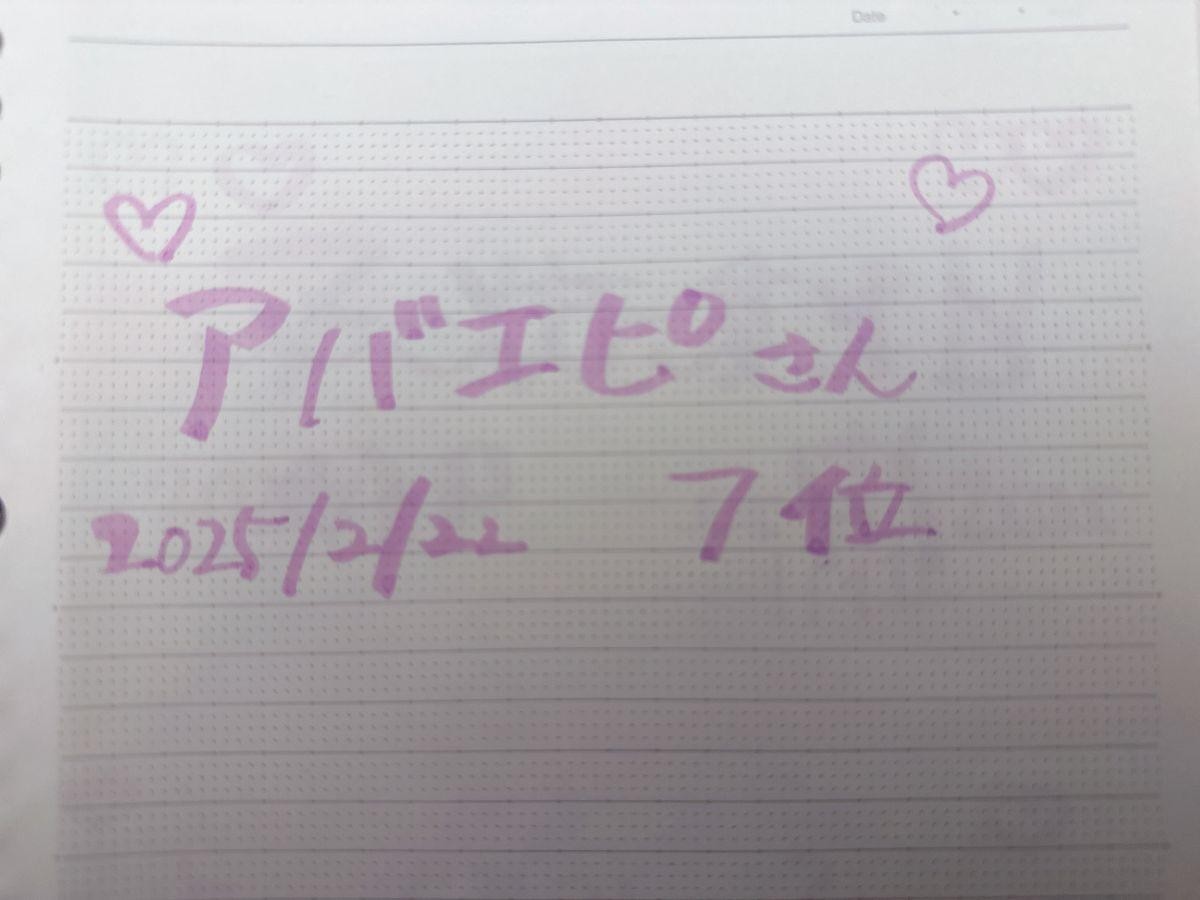 Date
♡ ♡
アバエピさん
2025/2/22 7位